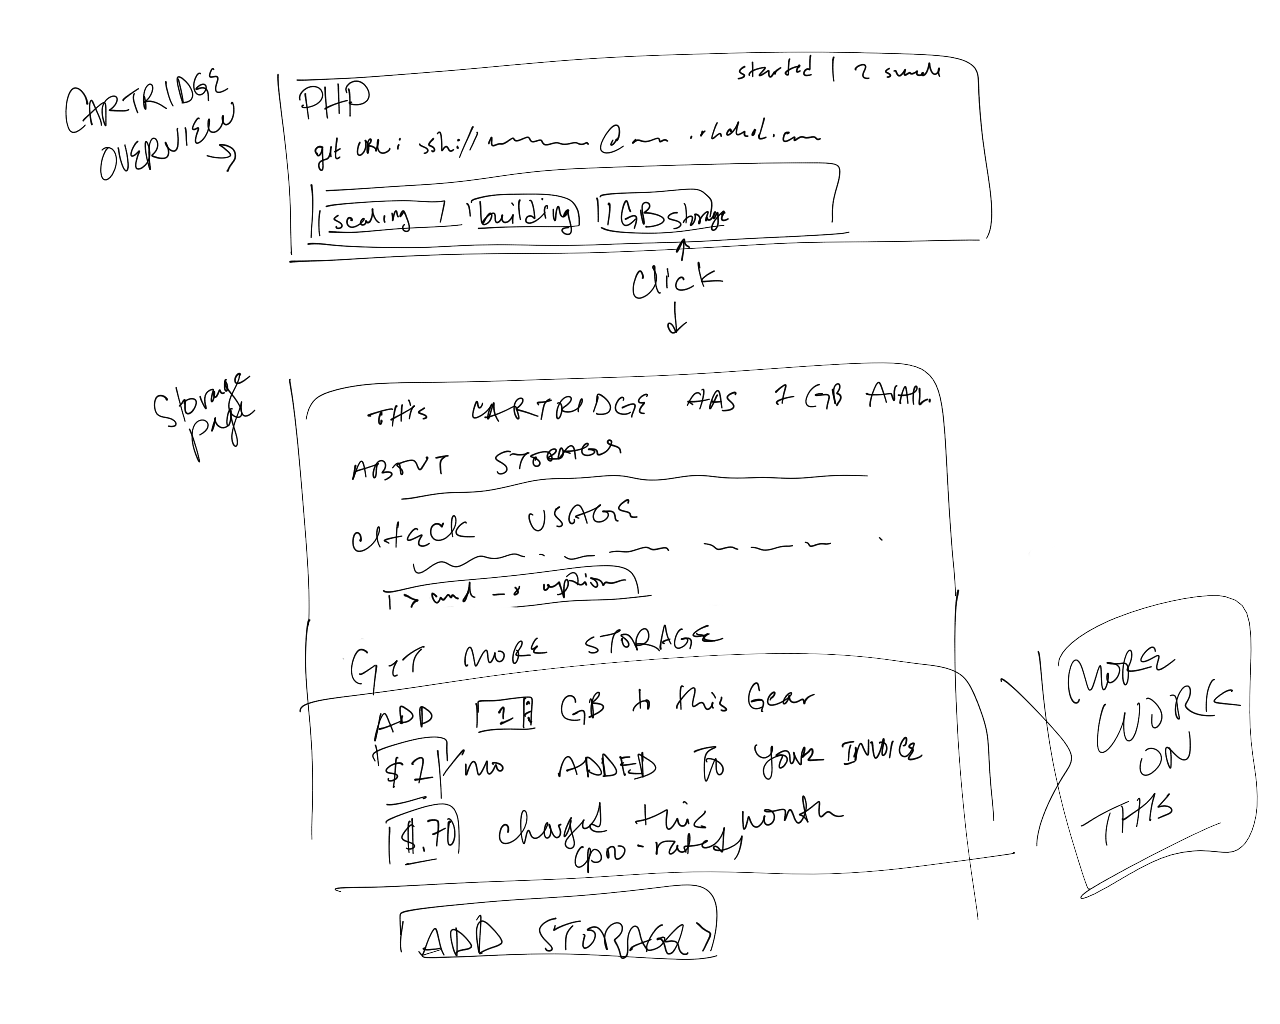 CARTRIDGE
OVERVIEW
started | 2
PHP
get URL: ssh:// @ .com
scaling
building
1GB storage
Click
Storage
page
THIS CARTRIDGE HAS 1 GB AVAIL.
ABOUT STORAGE
CHECK USAGE
> and option
GET MORE STORAGE
ADD 1 GB to this Gear
$1/mo ADDED TO YOUR INVOICE
$.70 charged this month
(pro-rated)
ADD STORAGE >
MORE
WORK
ON
THIS